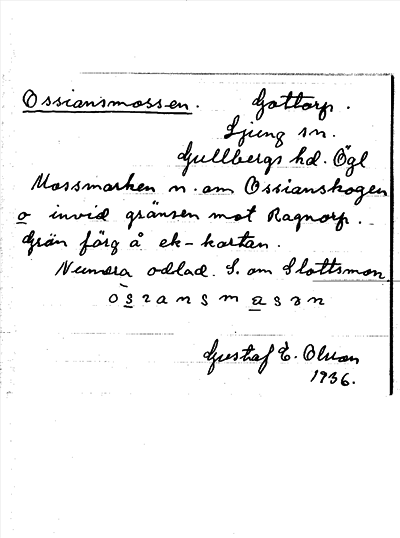 Ossiansmossen. Gottorp.
Ljung sn.
Gullbergs hd. Ögl
Mossmarken n. om Ossianskogen
o invid gränsen mot Ragnorp.
Grön färg å ek-kartan.
Numera odlad. S. om Slottsmon
òsıansmasən
Gustaf E. Olson
1936.